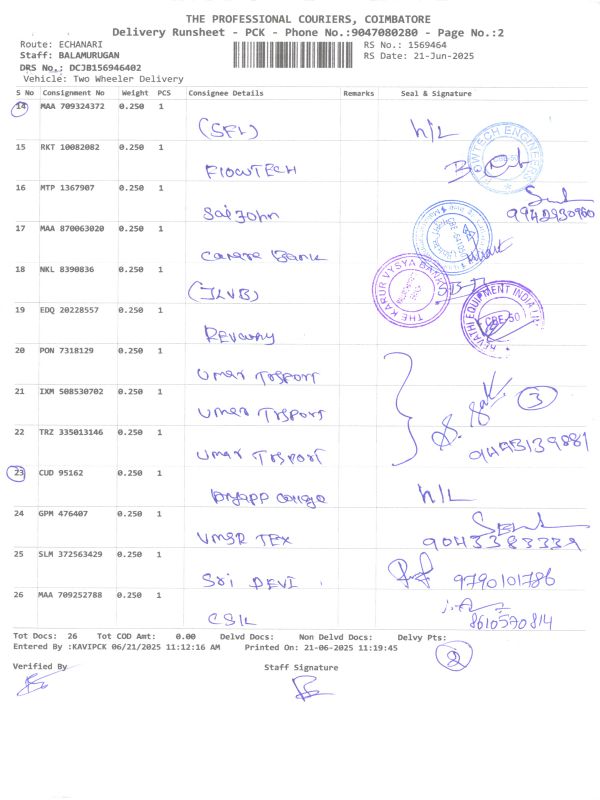 THE PROFESSIONAL COURIERS, COIMBATORE
Delivery Runsheet - PCK - Phone No.:9047080280 - Page No.:2
Route: ECHANARI
RS No.: 1569464
Staff: BALAMURUGAN
RS Date: 21-Jun-2025
DRS No.: DCJB156946402
Vehicle: Two Wheeler Delivery
S No Consignment No Weight PCS Consignee Details Remarks Seal & Signature
14 MAA 709324372 0.250 1
(SFL) h/L
15 RKT 10082082 0.250 1
FlowTECH
16 MTP 1367907 0.250 1
Sai John 9942930960
17 MAA 870063020 0.250 1
Canara Bank
18 NKL 8390836 0.250 1
THE KARUR VYSYA BANK
19 EDQ 20228557 0.250 1
REVATHI EQUIPMENT INDIA
CBE-50
20 PON 7318129 0.250 1
Umar TrSPort
21 IXM 508530702 0.250 1
Umar TrSPort 3
22 TRZ 335013146 0.250 1
Umar TrSPort
23 CUD 95162 0.250 1
h/L
24 GPM 476407 0.250 1
VMSR TEX 9043383339
25 SLM 372563429 0.250 1
Sri DEVI 9790101786
26 MAA 709252788 0.250 1
CSIL 8610570814
Tot Docs: 26 Tot COD Amt: 0.00 Delvd Docs: Non Delvd Docs: Delvy Pts:
Entered By :KAVIPCK 06/21/2025 11:12:16 AM Printed On: 21-06-2025 11:19:45
2
Verified By Staff Signature